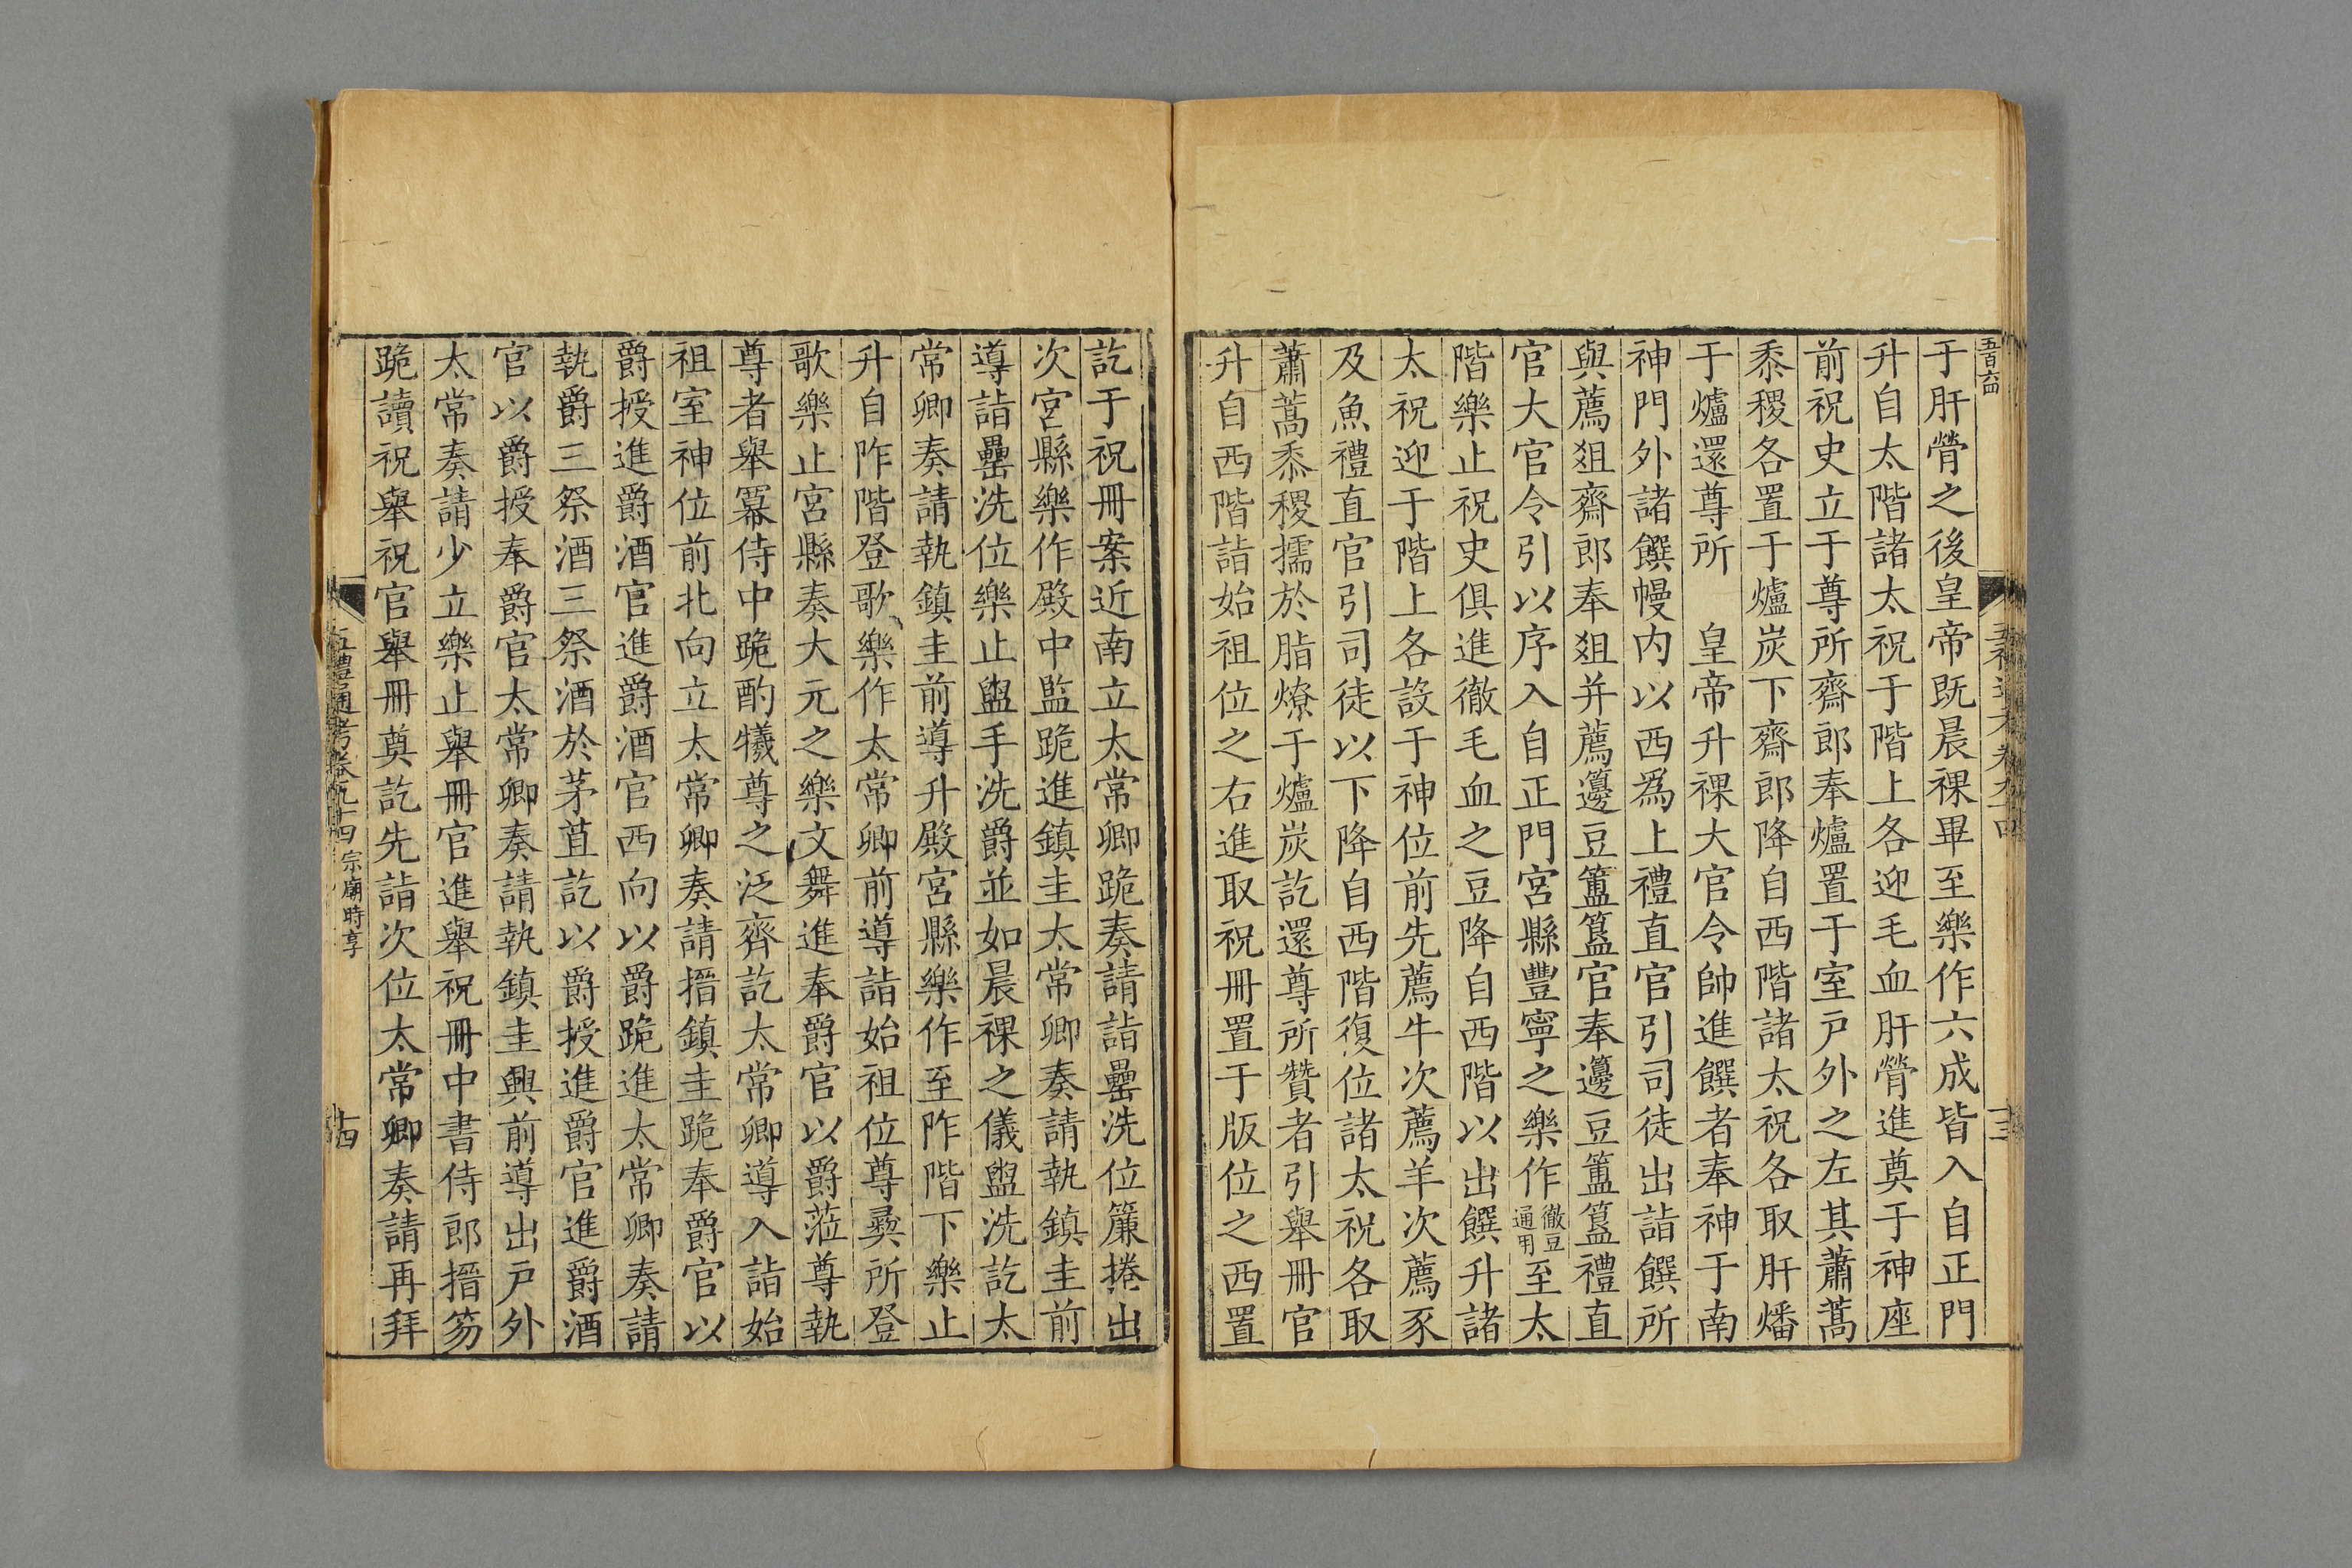 五百六四
于肝膋之後皇帝既晨祼畢至樂作六成皆入自正門
升自太階諸太祝于階上各迎毛血肝膋進奠于神座
前祝史立于尊所齋郎奉爐置于室戸外之左其蕭蒿
黍稷各置于爐炭下齋郎降自西階諸太祝各取肝燔
于爐還尊所　皇帝升祼大官令帥進饌者奉神于南
神門外諸饌幔内以西爲上禮直官引司徒出詣饌所
與薦俎齋郎奉俎并薦籩豆簠簋官奉籩豆簠簋禮直
官大官令引以序入自正門宮縣豐寧之樂作徹豆通用至太
階樂止祝史俱進徹毛血之豆降自西階以出饌升諸
太祝迎于階上各設于神位前先薦牛次薦羊次薦豕
及魚禮直官引司徒以下降自西階復位諸太祝各取
蕭蒿黍稷擩於脂燎于爐炭訖還尊所贊者引舉冊官
升自西階詣始祖位之右進取祝冊置于版位之西置
訖于祝冊案近南立太常卿跪奏請詣罍洗位簾捲出
次宮縣樂作殿中監跪進鎮圭太常卿奏請執鎮圭前
導詣罍洗位樂止盥手洗爵並如晨祼之儀盥洗訖太
常卿奏請執鎮圭前導升殿宮縣樂作至阼階下樂止
升自阼階登歌樂作太常卿前導詣始祖位尊彜所登
歌樂止宮縣奏大元之樂文舞進奉爵官以爵蒞尊執
尊者舉冪侍中跪酌犧尊之泛齊訖太常卿導入詣始
祖室神位前北向立太常卿奏請搢鎮圭跪奉爵官以
爵授進爵酒官進爵酒官西向以爵跪進太常卿奏請
執爵三祭酒三祭酒於茅苴訖以爵授進爵官進爵酒
官以爵授奉爵官太常卿奏請執鎮圭興前導出戸外
太常奏請少立樂止舉冊官進舉祝冊中書侍郎搢笏
跪讀祝舉祝官舉冊奠訖先詣次位太常卿奏請再拜
五禮通考卷九十四 宗廟時享 十四